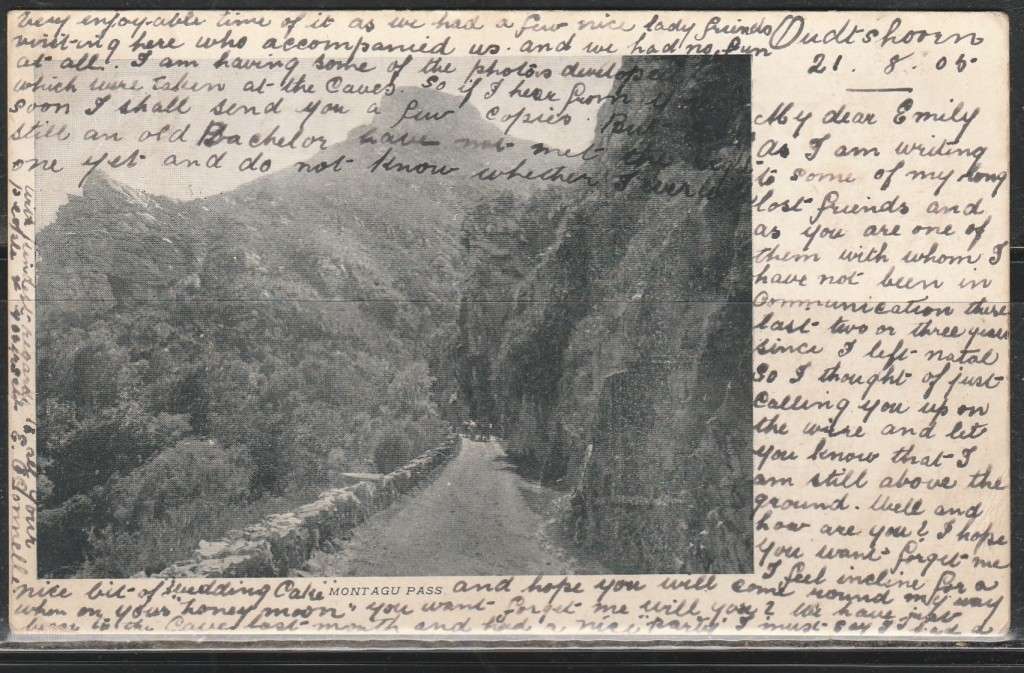 Oudtshoorn
21. 8. 05
My dear Emily
As I am writing
to some of my long
lost friends and
as you are one of
them with whom I
have not been in
Communication these
last two or three years
since I left natal
So I thought of just
Calling you up on
the wire and let
you know that I
am still above the
ground. Well and
how are you? I hope
you want forget me
I feel incline for a
nice bit of "wedding Cake" and hope you will come round my way
MONTAGU PASS
when on your "honey moon" you want forget me will you? We have just
been to the Caves last month and had a nice "party" I must say I had a
very enjoyable time of it as we had a few nice lady friends
visiting here who accompanied us. and we had no fun
at all. I am having some of the photos developed
which were taken at the Caves. So if I hear from you
soon I shall send you a few copies. But
still an old Bachelor have not met the right
one yet and do not know whether I ever
with kindest regards to all your
people &